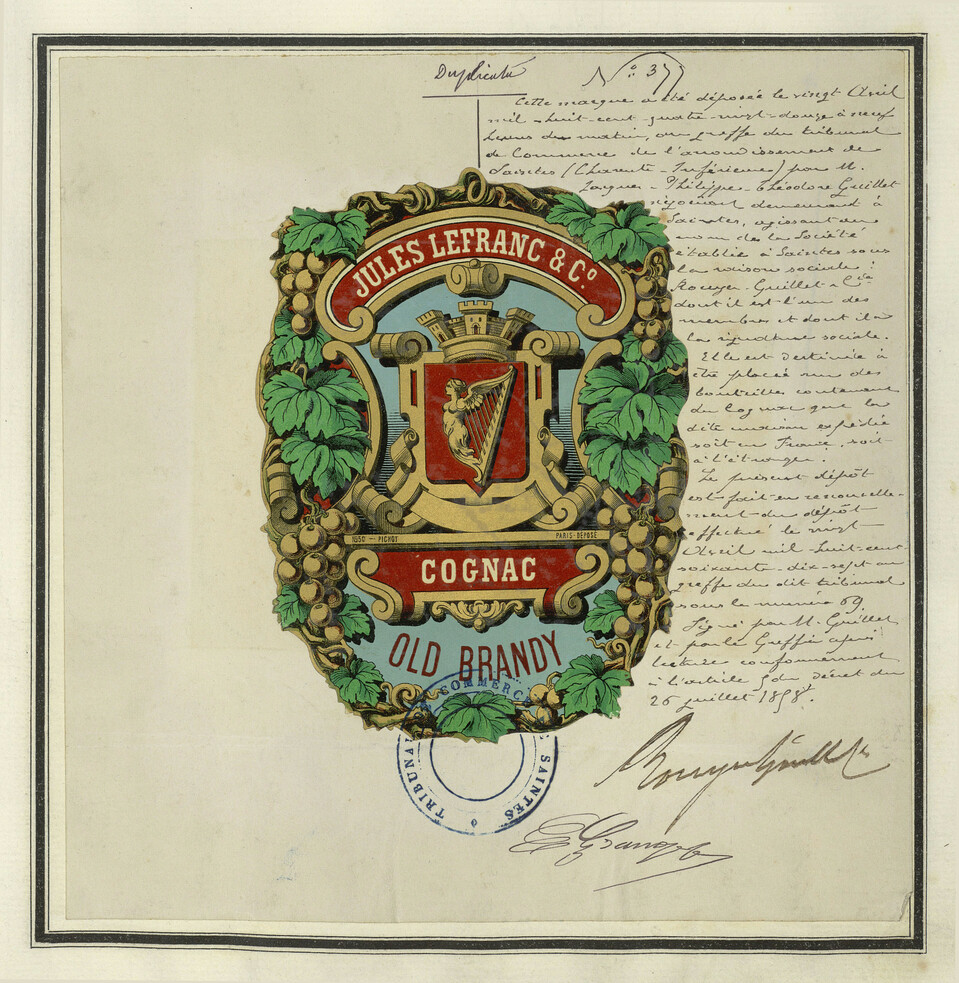 Duplicata
N° 377
Cette marque a été déposée le vingt Avril
mil-huit-cent-quatre-vingt-douze à neuf
heures du matin, au greffe du tribunal
de Commerce de l'arrondissement de
Saintes (Charente-Inférieure) par M.
Jacques-Philippe-Théodore Guillet
négociant demeurant à
Saintes, agissant au
nom de la Société
établie à Saintes sous
la raison sociale:
Rouyer-Guillet & Cie
dont il est l'un des
membres et dont il a
la signature sociale.
Elle est destinée à
être placée sur des
bouteilles contenant
du Cognac que la
dite maison expédie
soit en France, soit
à l'étranger.
Le présent dépôt
est fait en renouvelle-
ment du dépôt
effectué le vingt
Avril mil-huit-cent-
soixante-dix-sept au
greffe du dit tribunal
sous le numéro 69.
Signé par M. Guillet
et par le Greffier après
lecture conformément
à l'article 5 du Décret du
26 juillet 1858.
Rouyer Guillet & Cie
JULES LEFRANC & Cº.
1550 - PICHOT
PARIS-DÉPOSÉ
COGNAC
OLD BRANDY
TRIBUNAL DE COMMERCE SAINTES